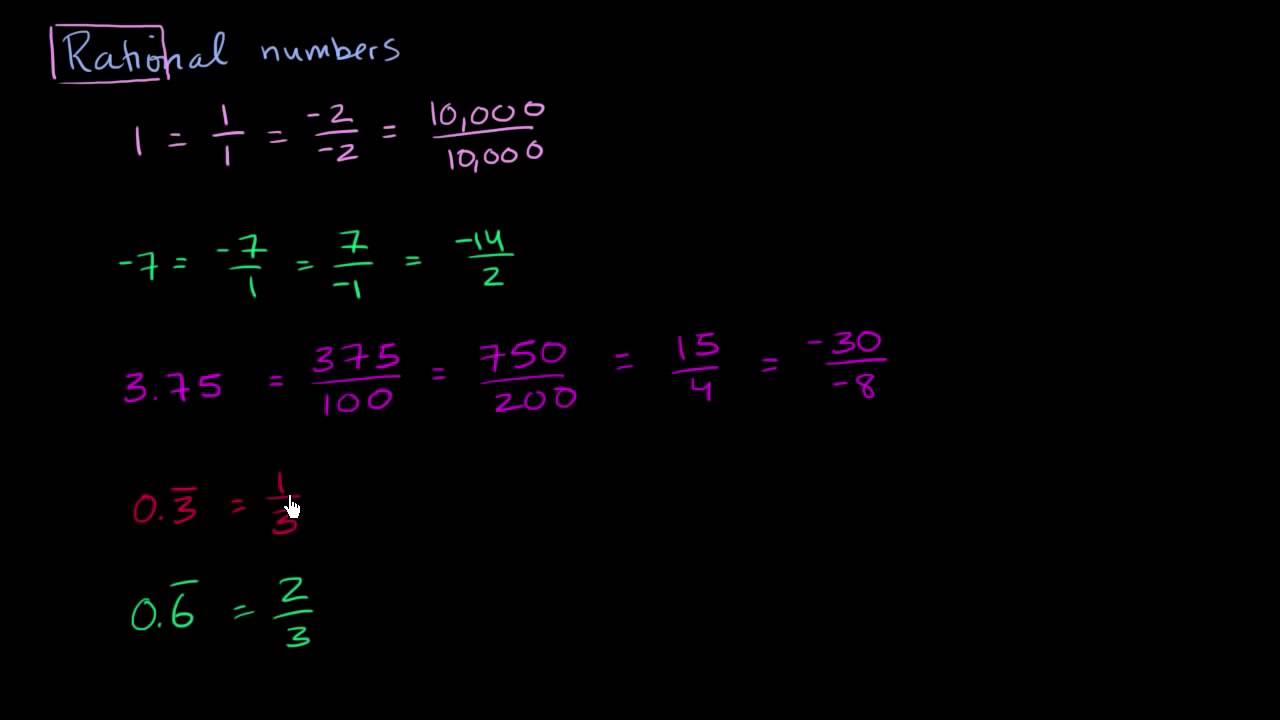 Rational numbers
1 = 1/1 = -2/-2 = 10,000/10,000
-7 = -7/1 = 7/-1 = -14/2
3.75 = 375/100 = 750/200 = 15/4 = -30/-8
0.3̅ = 1/3
0.6̅ = 2/3